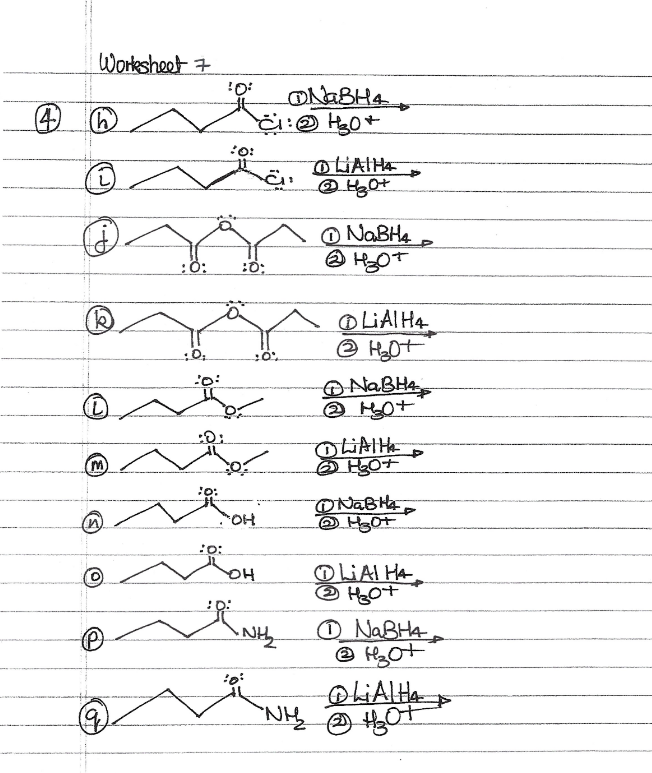 Worksheet 7
④ ⓗ :O: Cl: ① NaBH4
② H3O+
ⓘ :O: Cl: ① LiAlH4
② H3O+
ⓙ O :O: :O: ① NaBH4
② H3O+
ⓚ O :O: :O: ① LiAlH4
② H3O+
ⓛ :O: O ① NaBH4
② H3O+
ⓜ :O: O ① LiAlH4
② H3O+
ⓝ :O: OH ① NaBH4
② H3O+
ⓞ :O: OH ① LiAlH4
② H3O+
ⓟ :O: NH2 ① NaBH4
② H3O+
ⓠ :O: NH2 ① LiAlH4
② H3O+